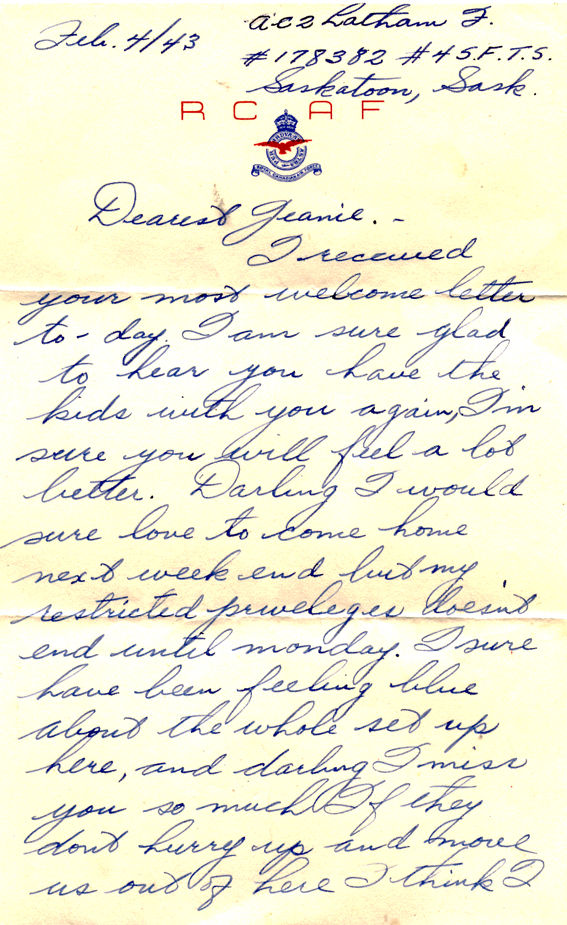 Feb. 4/43
AC2 Latham F.
#178382 #4 S.F.T.S.
Saskatoon, Sask.
R C A F
ROYAL CANADIAN AIR FORCE
Dearest Jeanie. -
I received
your most welcome letter
to-day. I am sure glad
to hear you have the
kids with you again, I'm
sure you will feel a lot
better. Darling I would
sure love to come home
next week end but my
restricted priveleges doesn't
end until monday. I sure
have been feeling blue
about the whole set up
here, and darling I miss
you so much. If they
don't hurry up and move
us out of here I think I